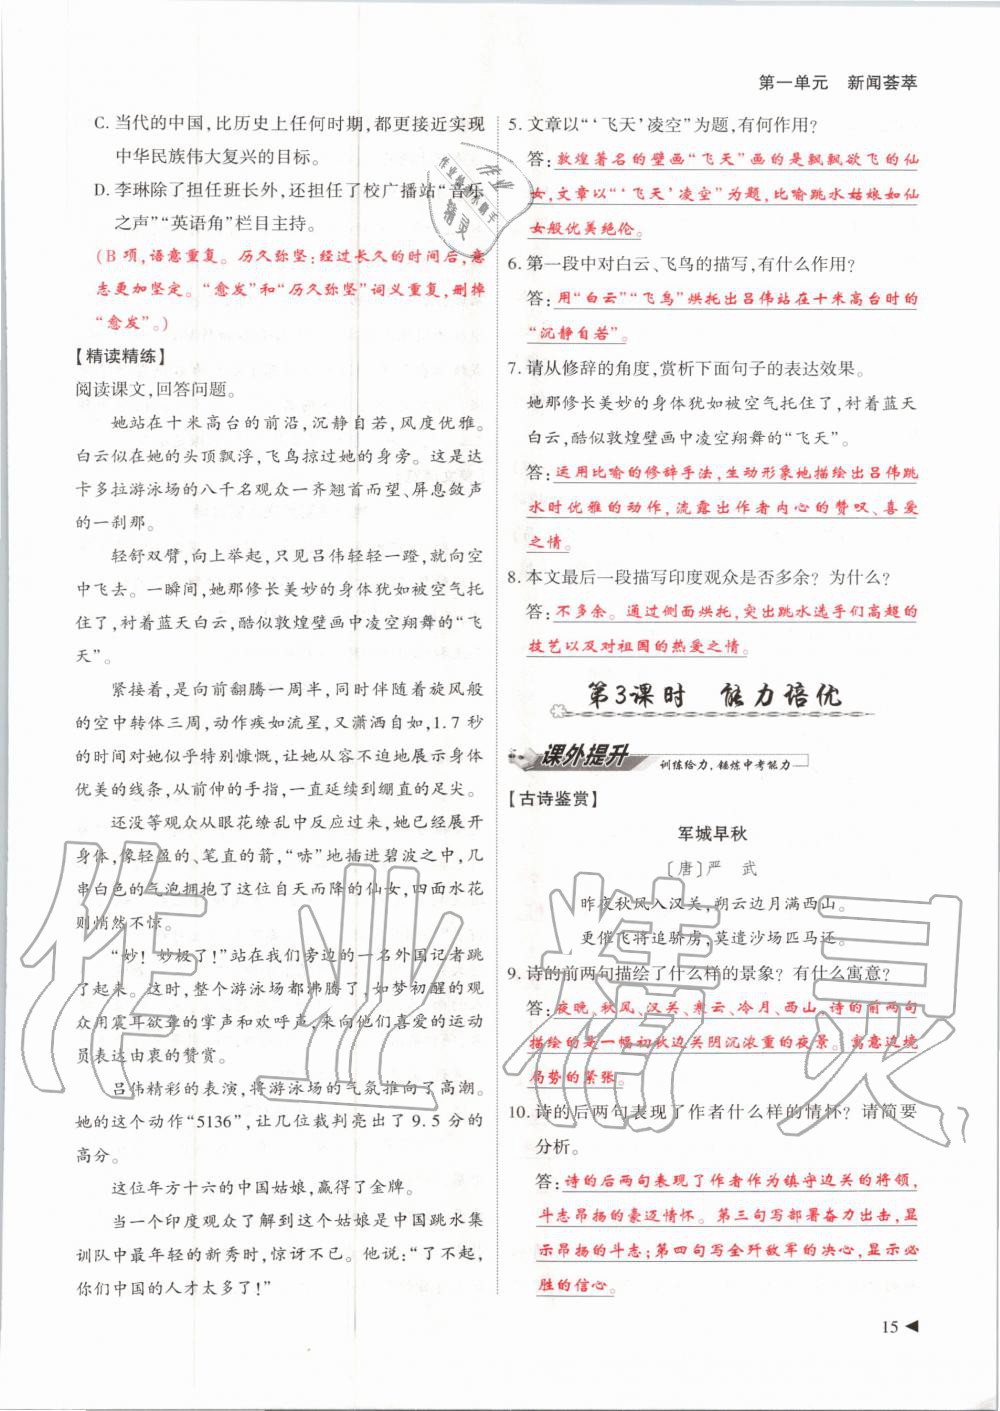 第一单元 新闻荟萃
C. 当代的中国,比历史上任何时期,都更接近实现
中华民族伟大复兴的目标。
D. 李琳除了担任班长外,还担任了校广播站“音乐
之声”“英语角”栏目主持。
(B 项,语意重复。历久弥坚:经过长久的时间后,意
志更加坚定。“愈发”和“历久弥坚”词义重复,删掉
“愈发”。)
【精读精练】
阅读课文,回答问题。
她站在十米高台的前沿,沉静自若,风度优雅。
白云似在她的头顶飘浮,飞鸟掠过她的身旁。这是达
卡多拉游泳场的八千名观众一齐翘首而望、屏息敛声
的一刹那。
轻舒双臂,向上举起,只见吕伟轻轻一蹬,就向空
中飞去。一瞬间,她那修长美妙的身体犹如被空气托
住了,衬着蓝天白云,酷似敦煌壁画中凌空翔舞的“飞
天”。
紧接着,是向前翻腾一周半,同时伴随着旋风般
的空中转体三周,动作疾如流星,又潇洒自如,1.7 秒
的时间对她似乎特别慷慨,让她从容不迫地展示身体
优美的线条,从前伸的手指,一直延续到绷直的足尖。
还没等观众从眼花缭乱中反应过来,她已经展开
身体,像轻盈的、笔直的箭,“哧”地插进碧波之中,几
串白色的气泡拥抱了这位自天而降的仙女,四面水花
则悄然不惊。
“妙!妙极了!”站在我们旁边的一名外国记者跳
了起来。这时,整个游泳场都沸腾了,如梦初醒的观
众用震耳欲聋的掌声和欢呼声,来向他们喜爱的运动
员表达由衷的赞赏。
吕伟精彩的表演,将游泳场的气氛推向了高潮。
她的这个动作“5136”,让几位裁判亮出了 9.5 分的
高分。
这位年方十六的中国姑娘,赢得了金牌。
当一个印度观众了解到这个姑娘是中国跳水集
训队中最年轻的新秀时,惊讶不已。他说:“了不起,
你们中国的人才太多了!”
作业
作业检查小助手
精灵
5. 文章以“‘飞天’凌空”为题,有何作用?
答:敦煌著名的壁画“飞天”画的是飘飘欲飞的仙
女,文章以“‘飞天’凌空”为题,比喻跳水姑娘如仙
女般优美绝伦。
6. 第一段中对白云、飞鸟的描写,有什么作用?
答:用“白云”“飞鸟”烘托出吕伟站在十米高台时的
“沉静自若”。
7. 请从修辞的角度,赏析下面句子的表达效果。
她那修长美妙的身体犹如被空气托住了,衬着蓝天
白云,酷似敦煌壁画中凌空翔舞的“飞天”。
答:运用比喻的修辞手法,生动形象地描绘出吕伟跳
水时优雅的动作,流露出作者内心的赞叹、喜爱
之情。
8. 本文最后一段描写印度观众是否多余?为什么?
答:不多余。通过侧面烘托,突出跳水选手们高超的
技艺以及对祖国的热爱之情。
第3课时 能力培优
课外提升 训练给力,锤炼中考能力
【古诗鉴赏】
军城早秋
〔唐〕严 武
昨夜秋风入汉关,朔云边月满西山。
更催飞将追骄虏,莫遣沙场匹马还。
9. 诗的前两句描绘了什么样的景象?有什么寓意?
答:夜晚,秋风、汉关、寒云、冷月、西山,诗的前两句
描绘的是一幅初秋边关阴沉浓重的夜景。寓意边境
局势的紧张。
10. 诗的后两句表现了作者什么样的情怀?请简要
分析。
答:诗的后两句表现了作者作为镇守边关的将领,
斗志昂扬的豪迈情怀。第三句写部署奋力出击,显
示昂扬的斗志;第四句写全歼敌军的决心,显示必
胜的信心。
作业精灵
15